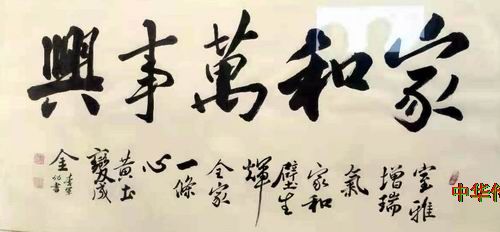 家和萬事興
室雅
增瑞
氣
家和
壁生
輝
全家
一條
心
黄土
變成
金
中华